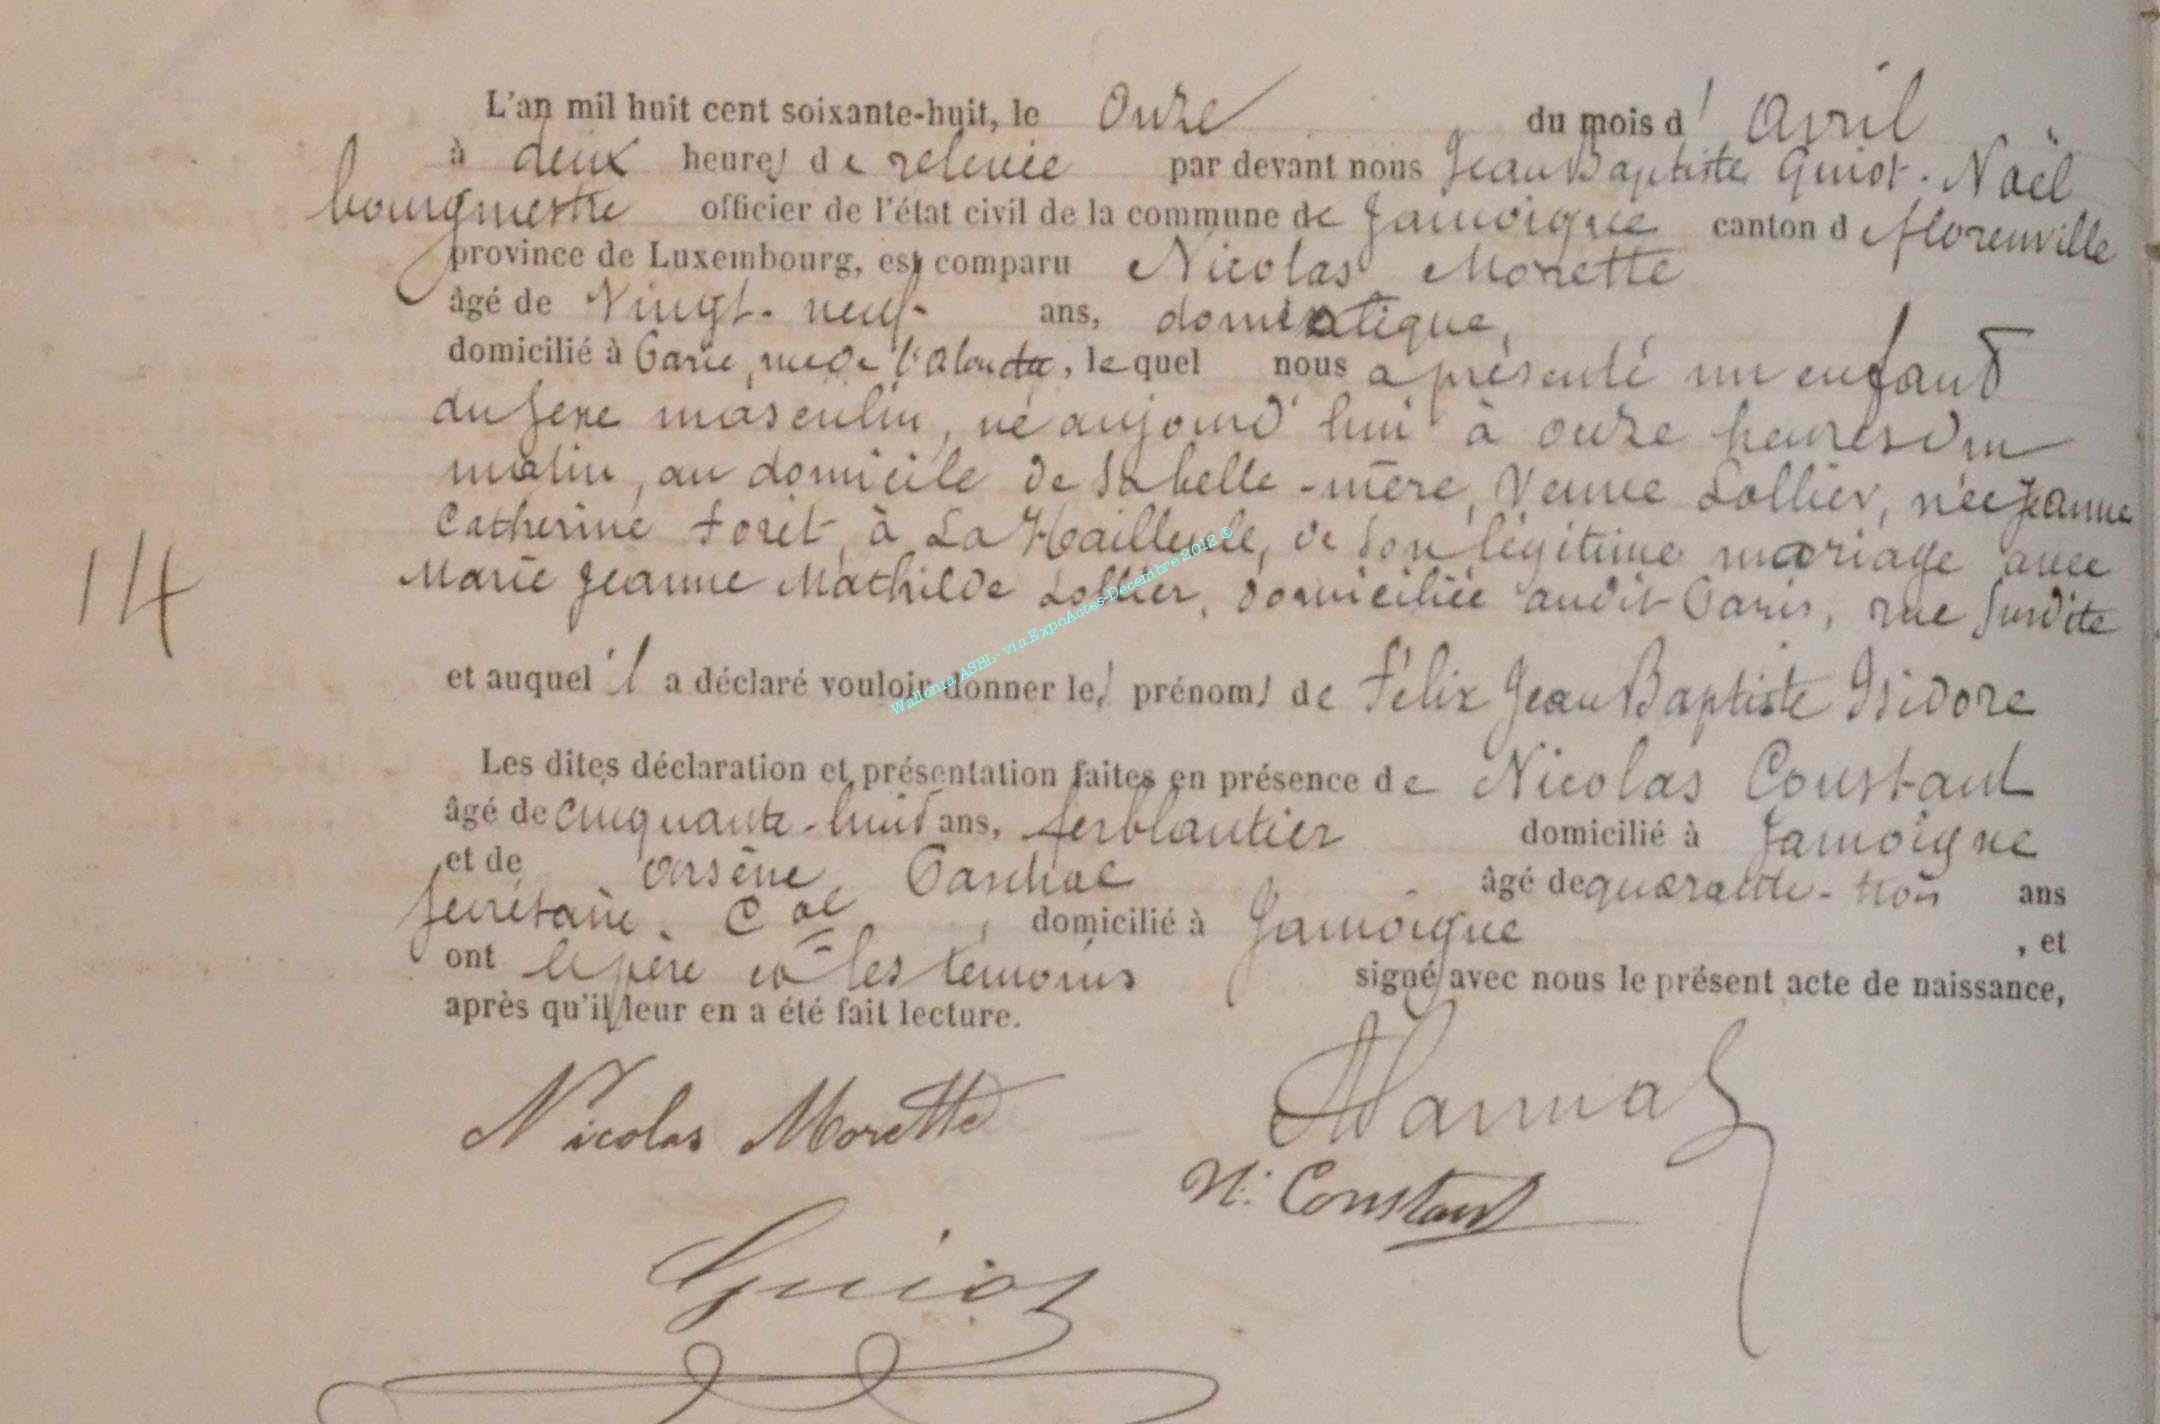 L'an mil huit cent soixante-huit, le Onze du mois d' Avril
à deux heures de relevée par devant nous Jean Baptiste Guiot-Noël
bourgmestre officier de l'état civil de la commune de Jamoigne canton de florenville
province de Luxembourg, est comparu Nicolas Morette
âgé de Vingt-neuf ans, domestique,
domicilié à Paris, rue de l' , le quel nous a présenté un enfant
du sexe masculin, né aujourd'hui à onze heures du
matin, au domicile de sa belle-mère, Veuve Lollier, née Jeanne
Catherine Foret, à La Hailleule, de son légitime mariage avec
14
Marie Jeanne Mathilde Lollier, domiciliée audit Paris, rue susdite
et auquel il a déclaré vouloir donner les prénoms de Félix Jean Baptiste Isidore
Les dites déclaration et présentation faites en présence de Nicolas Constant
âgé de cinquante-huit ans, ferblantier domicilié à Jamoigne
et de Arsène âgé de quarante-trois ans
secrétaire Cal , domicilié à Jamoigne , et
ont le père et les témoins signé avec nous le présent acte de naissance,
après qu'il leur en a été fait lecture.
Nicolas Morette
N. Constant
Guiot
Wallonia ASBL - via ExpoActes-Décembre 2012 ©